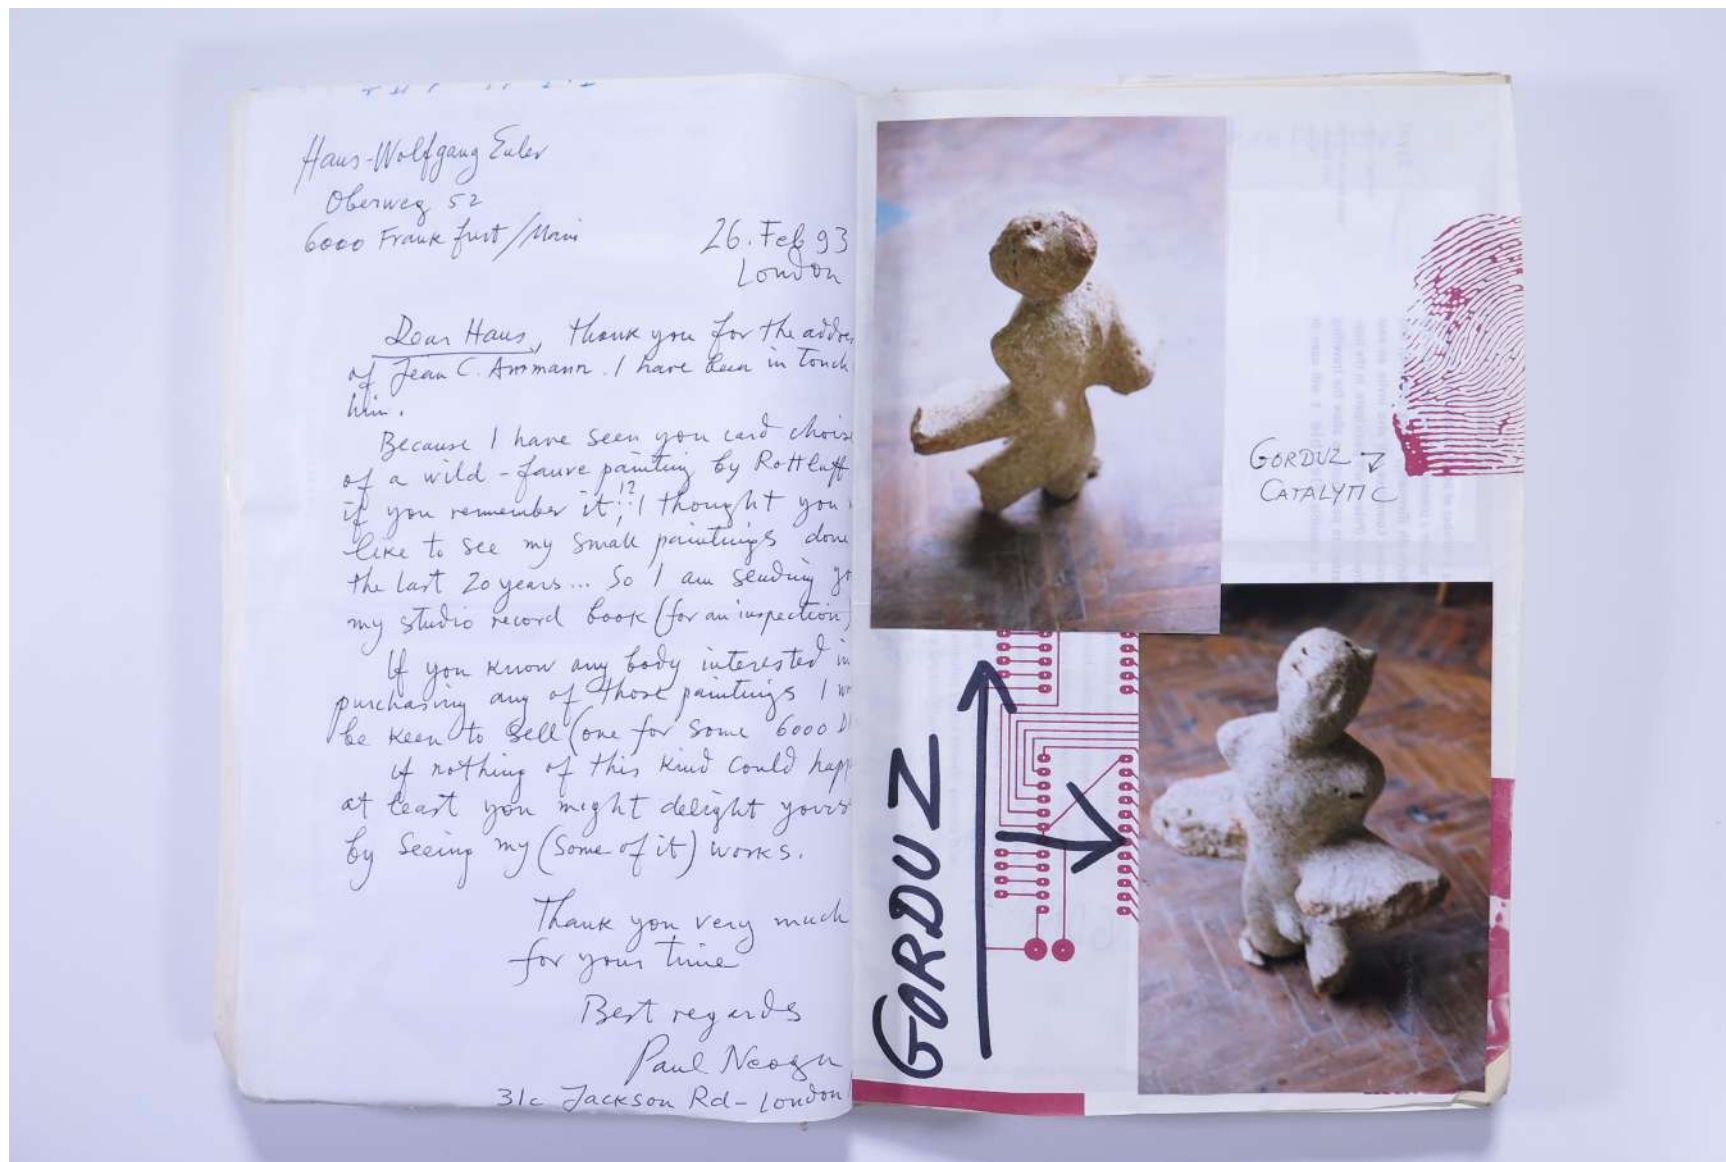 Hans-Wolfgang Euler
Oberweg 52
6000 Frankfurt/Main
26. Feb 93
London
Dear Hans, thank you for the addre
of Jean C. Ammann. I have been in touch
him.
Because I have seen you card chois
of a wild-fauve painting by Rottluff
if you remember it!? I thought you
like to see my small paintings done
the last 20 years... So I am sending yo
my studio record book (for an inspection)
If you know any body interested in
purchasing any of those paintings I w
be keen to sell (one for some 6000 D
if nothing of this kind could happ
at least you might delight yours
by seeing my (some of it) works.
Thank you very much
for your time
Best regards
Paul Neagu
31c Jackson Rd - London
GORDUZ
CATALYTIC
GORDUZ